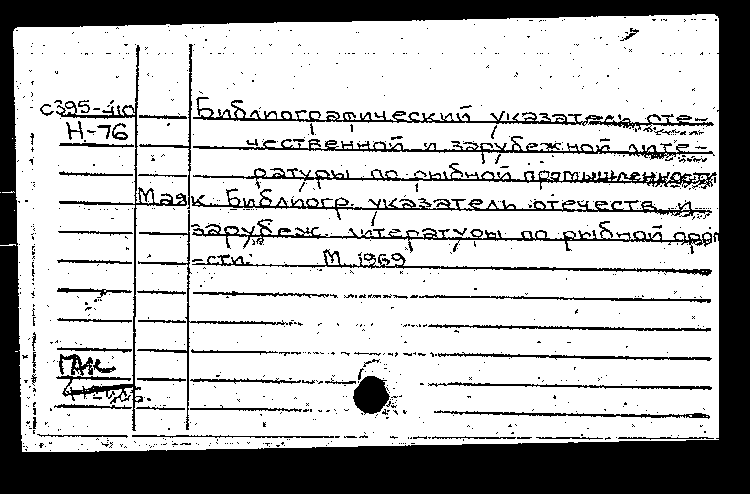 с395-410
Н-76
Библиографический указатель оте-
чественной и зарубежной лите-
ратуры по рыбной промышленности
Маяк. Библиогр. указатель отечеств. и
зарубеж. литературы по рыбной пром
=сти. М. 1969
ГАК